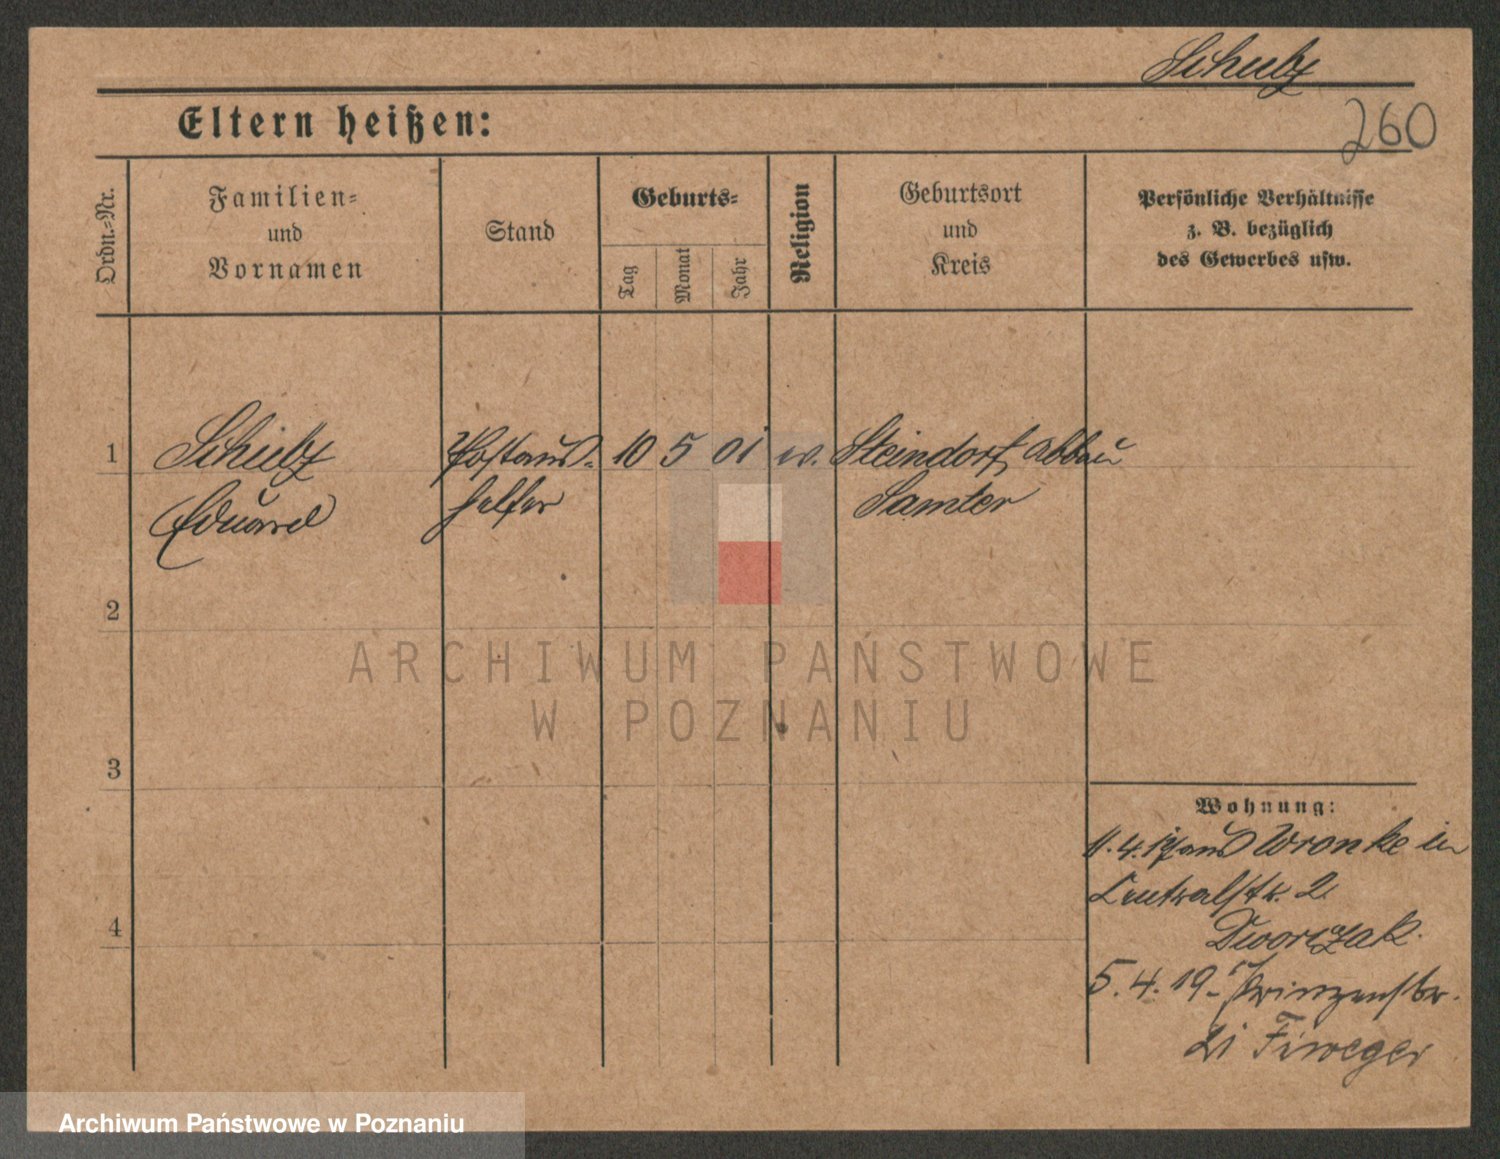 Schulz
260
Eltern heißen:
Ordn.-Nr.
Familien-
und
Vornamen
Stand
Geburts-
Tag
Monat
Jahr
Religion
Geburtsort
und
Kreis
Persönliche Verhältnisse
z. B. bezüglich
des Gewerbes usw.
1 Schulz Postaus- 10 5 01 ev. Steindorf Abbau
Eduard helfer Samter
2
3
4
Wohnung:
11.4.17 aus Wronke in
Centralstr. 2
Dworczak.
5.4.19 - Prinzenstr.
Fiweger
ARCHIWUM PAŃSTWOWE
W POZNANIU
Archiwum Państwowe w Poznaniu